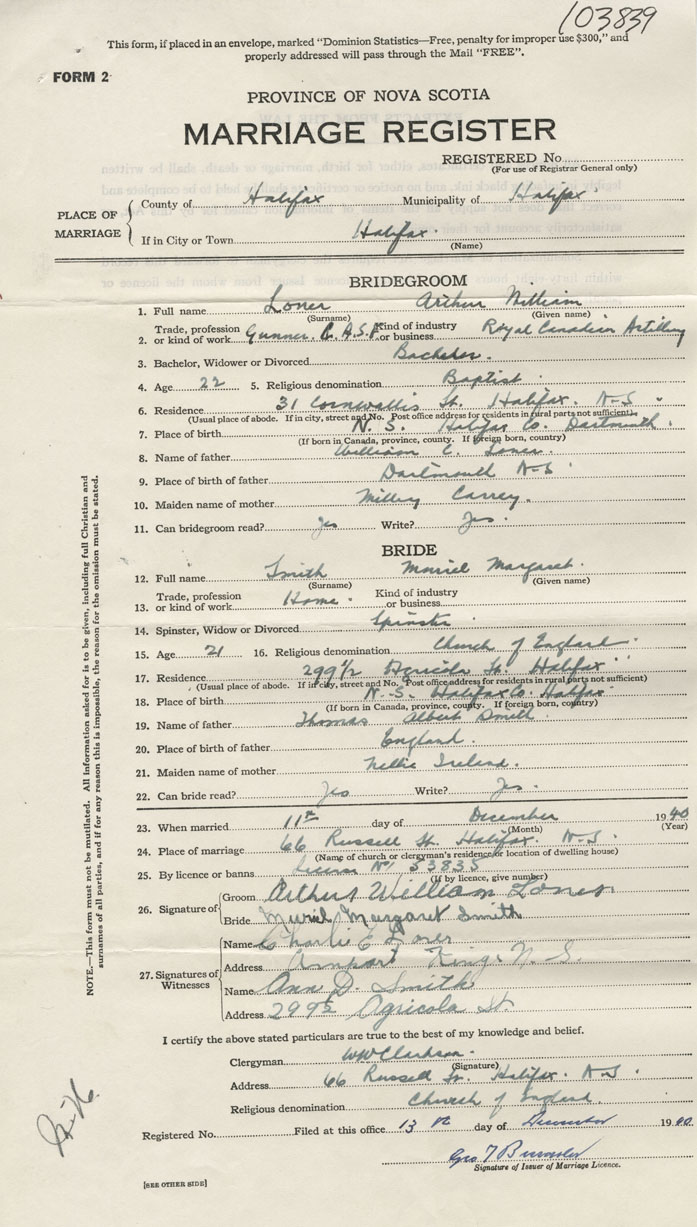 103839
This form, if placed in an envelope, marked "Dominion Statistics—Free, penalty for improper use $300," and
properly addressed will pass through the Mail "FREE".
FORM 2
PROVINCE OF NOVA SCOTIA
MARRIAGE REGISTER
REGISTERED No.
(For use of Registrar General only)
PLACE OF MARRIAGE
County of Halifax Municipality of Halifax
If in City or Town Halifax.
(Name)
BRIDEGROOM
1. Full name Loner Arthur William
(Surname) (Given name)
2. Trade, profession or kind of work Gunner. C.A.S.F. Kind of industry or business Royal Canadian Artillery
3. Bachelor, Widower or Divorced Bachelor.
4. Age 22 5. Religious denomination Baptist.
6. Residence 31 Cornwallis St. Halifax. N-S.
(Usual place of abode. If in city, street and No. Post office address for residents in rural parts not sufficient)
7. Place of birth N.S. Halifax Co. Dartmouth.
(If born in Canada, province, county. If foreign born, country)
8. Name of father William C. Loner.
9. Place of birth of father Dartmouth N-S.
10. Maiden name of mother
11. Can bridegroom read? Yes Write? Yes.
BRIDE
12. Full name Smith Muriel Margaret.
(Surname) (Given name)
13. Trade, profession or kind of work Home. Kind of industry or business
14. Spinster, Widow or Divorced Spinster
15. Age 21 16. Religious denomination Church of England
17. Residence 299 1/2 Agricola St. Halifax.
(Usual place of abode. If in city, street and No. Post office address for residents in rural parts not sufficient)
18. Place of birth N.S. Halifax Co. Halifax.
(If born in Canada, province, county. If foreign born, country)
19. Name of father Thomas Albert Smith.
20. Place of birth of father England.
21. Maiden name of mother Nellie Ireland.
22. Can bride read? Yes Write? Yes.
23. When married 11th day of December 1940
(Month) (Year)
24. Place of marriage 66 Russell St. Halifax. N-S.
(Name of church or clergyman's residence or location of dwelling house)
25. By licence or banns Licence No. 53835
(If by licence, give number)
26. Signature of
Groom Arthur William Loner
Bride Muriel Margaret Smith
27. Signatures of Witnesses
Name Charlie E Loner
Address Kings N.S.
Name Ann D. Smith
Address 299½ Agricola St.
I certify the above stated particulars are true to the best of my knowledge and belief.
Clergyman WW Clarkson.
(Signature)
Address 66 Russell St. Halifax. N-S.
Religious denomination Church of England
Registered No. Filed at this office 13th day of December 1940
Geo T
Signature of Issuer of Marriage Licence.
[SEE OTHER SIDE]
NOTE.—This form must not be mutilated. All information asked for is to be given, including full Christian and
surnames of all parties, and if for any reason this is impossible, the reason for the omission must be stated.